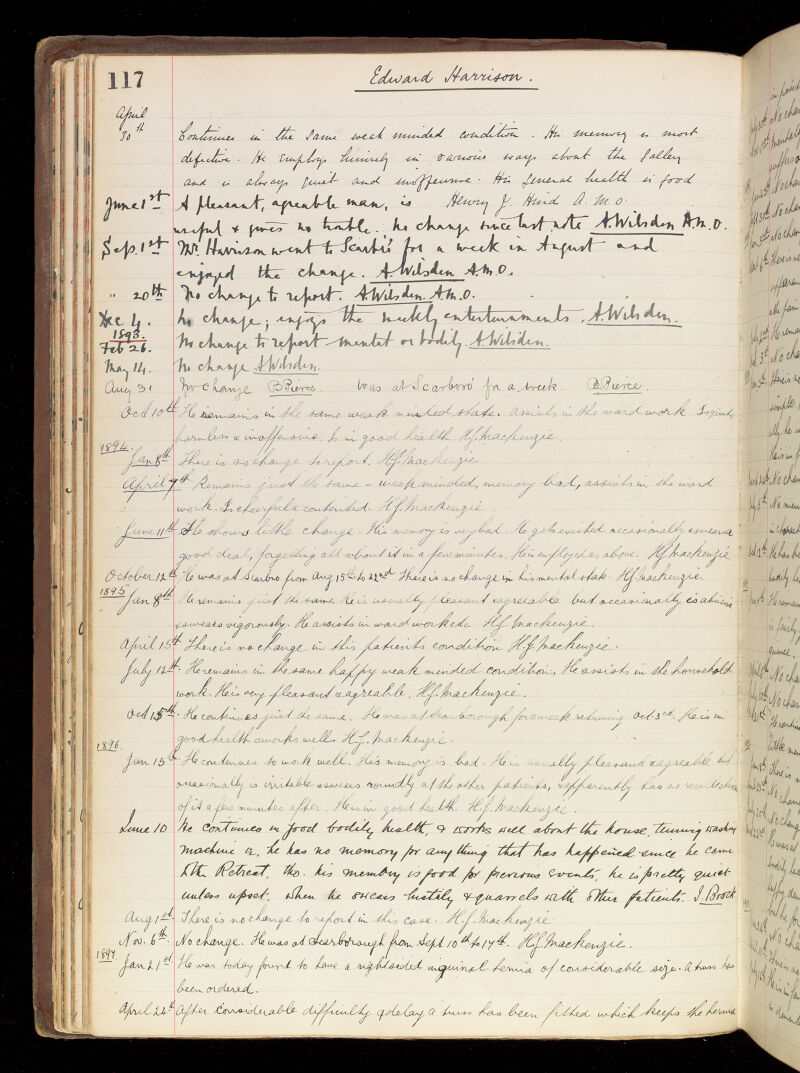 117
Edward Harrison.
April
30th Continues in the same weak minded condition. His memory is most
defective. He employs himself in various ways about the Gallery
and is always quiet and inoffensive. His general health is good
Henry J. Hind A.M.O.
June 1st A pleasant, agreeable man, is
useful & gives no trouble. No change since last note A. Wilsden A.M.O.
Sep. 1st Mr. Harrison went to Scarbro' for a week in August and
enjoyed the change. A. Wilsden A.M.O.
" 20th No change to report. A. Wilsden. A.M.O.
Dec 4. No change; enjoys the weekly entertainments. A. Wilsden.
1893.
Feb 26. No change to report mental or bodily. A. Wilsden.
May 14. No change A. Wilsden.
Aug 31 No change B Pierce. Was at Scarboro' for a week. B Pierce.
Oct 10th He remains in the same weak minded state. Assists in the ward work. Is quite
harmless & inoffensive. Is in good health. H.J. Mackenzie.
1894.
Jan 8th There is no change to report. H.J. Mackenzie
April 7th Remains just the same - weak minded, memory bad, assists in the ward
work. Is cheerful & contented. H.J. Mackenzie.
June 11th He shows little change. His memory is very bad. He gets excited occasionally & swears a
good deal, forgetting all about it in a few minutes. He is employed as above. H.J. Mackenzie
October 12th He was at Scarbro from Aug 15th to 22nd There is no change in his mental state. H.J. Mackenzie.
1895
Jan 8th He remains just the same. He is usually pleasant & agreeable but occasionally is abusive
& swears vigorously. He assists in ward work &c. H.J. Mackenzie.
April 15th There is no change in this patients condition H.J. Mackenzie.
July 12th. He remains in the same happy weak minded condition. He assists in the household
work. He is very pleasant & agreeable. H.J. Mackenzie.
Oct 15th. He continues just the same. He was at Scarborough for a week returning Oct 3rd. He is in
good health & works well. H.J. Mackenzie.
1896.
Jan 15th He continues to work well. His memory is bad. He is usually pleasant & agreeable but
occasionally is irritable & swears roundly at the other patients, & apparently has no recollection
of it a few minutes after. He is in good health. H.J. Mackenzie.
June 10 He continues in good bodily health, & works well about the house, turning washing
machine &c, he has no memory for anything that has happened since he came
to the Retreat, tho. his memory is good for previous events, he is pretty quiet
unless upset, when he swears lustily & quarrels with other patients. J. Brock
Aug 1st. There is no change to report in this case. H.J. Mackenzie.
Nov. 6th. No change. He was at Scarborough from Sept 10th to 17th. H.J. Mackenzie.
1897
Jan 21st He was today found to have a right sided inguinal hernia of considerable size. A truss has
been ordered.
April 22d After considerable difficulty & delay a truss has been fitted which keeps the hernia